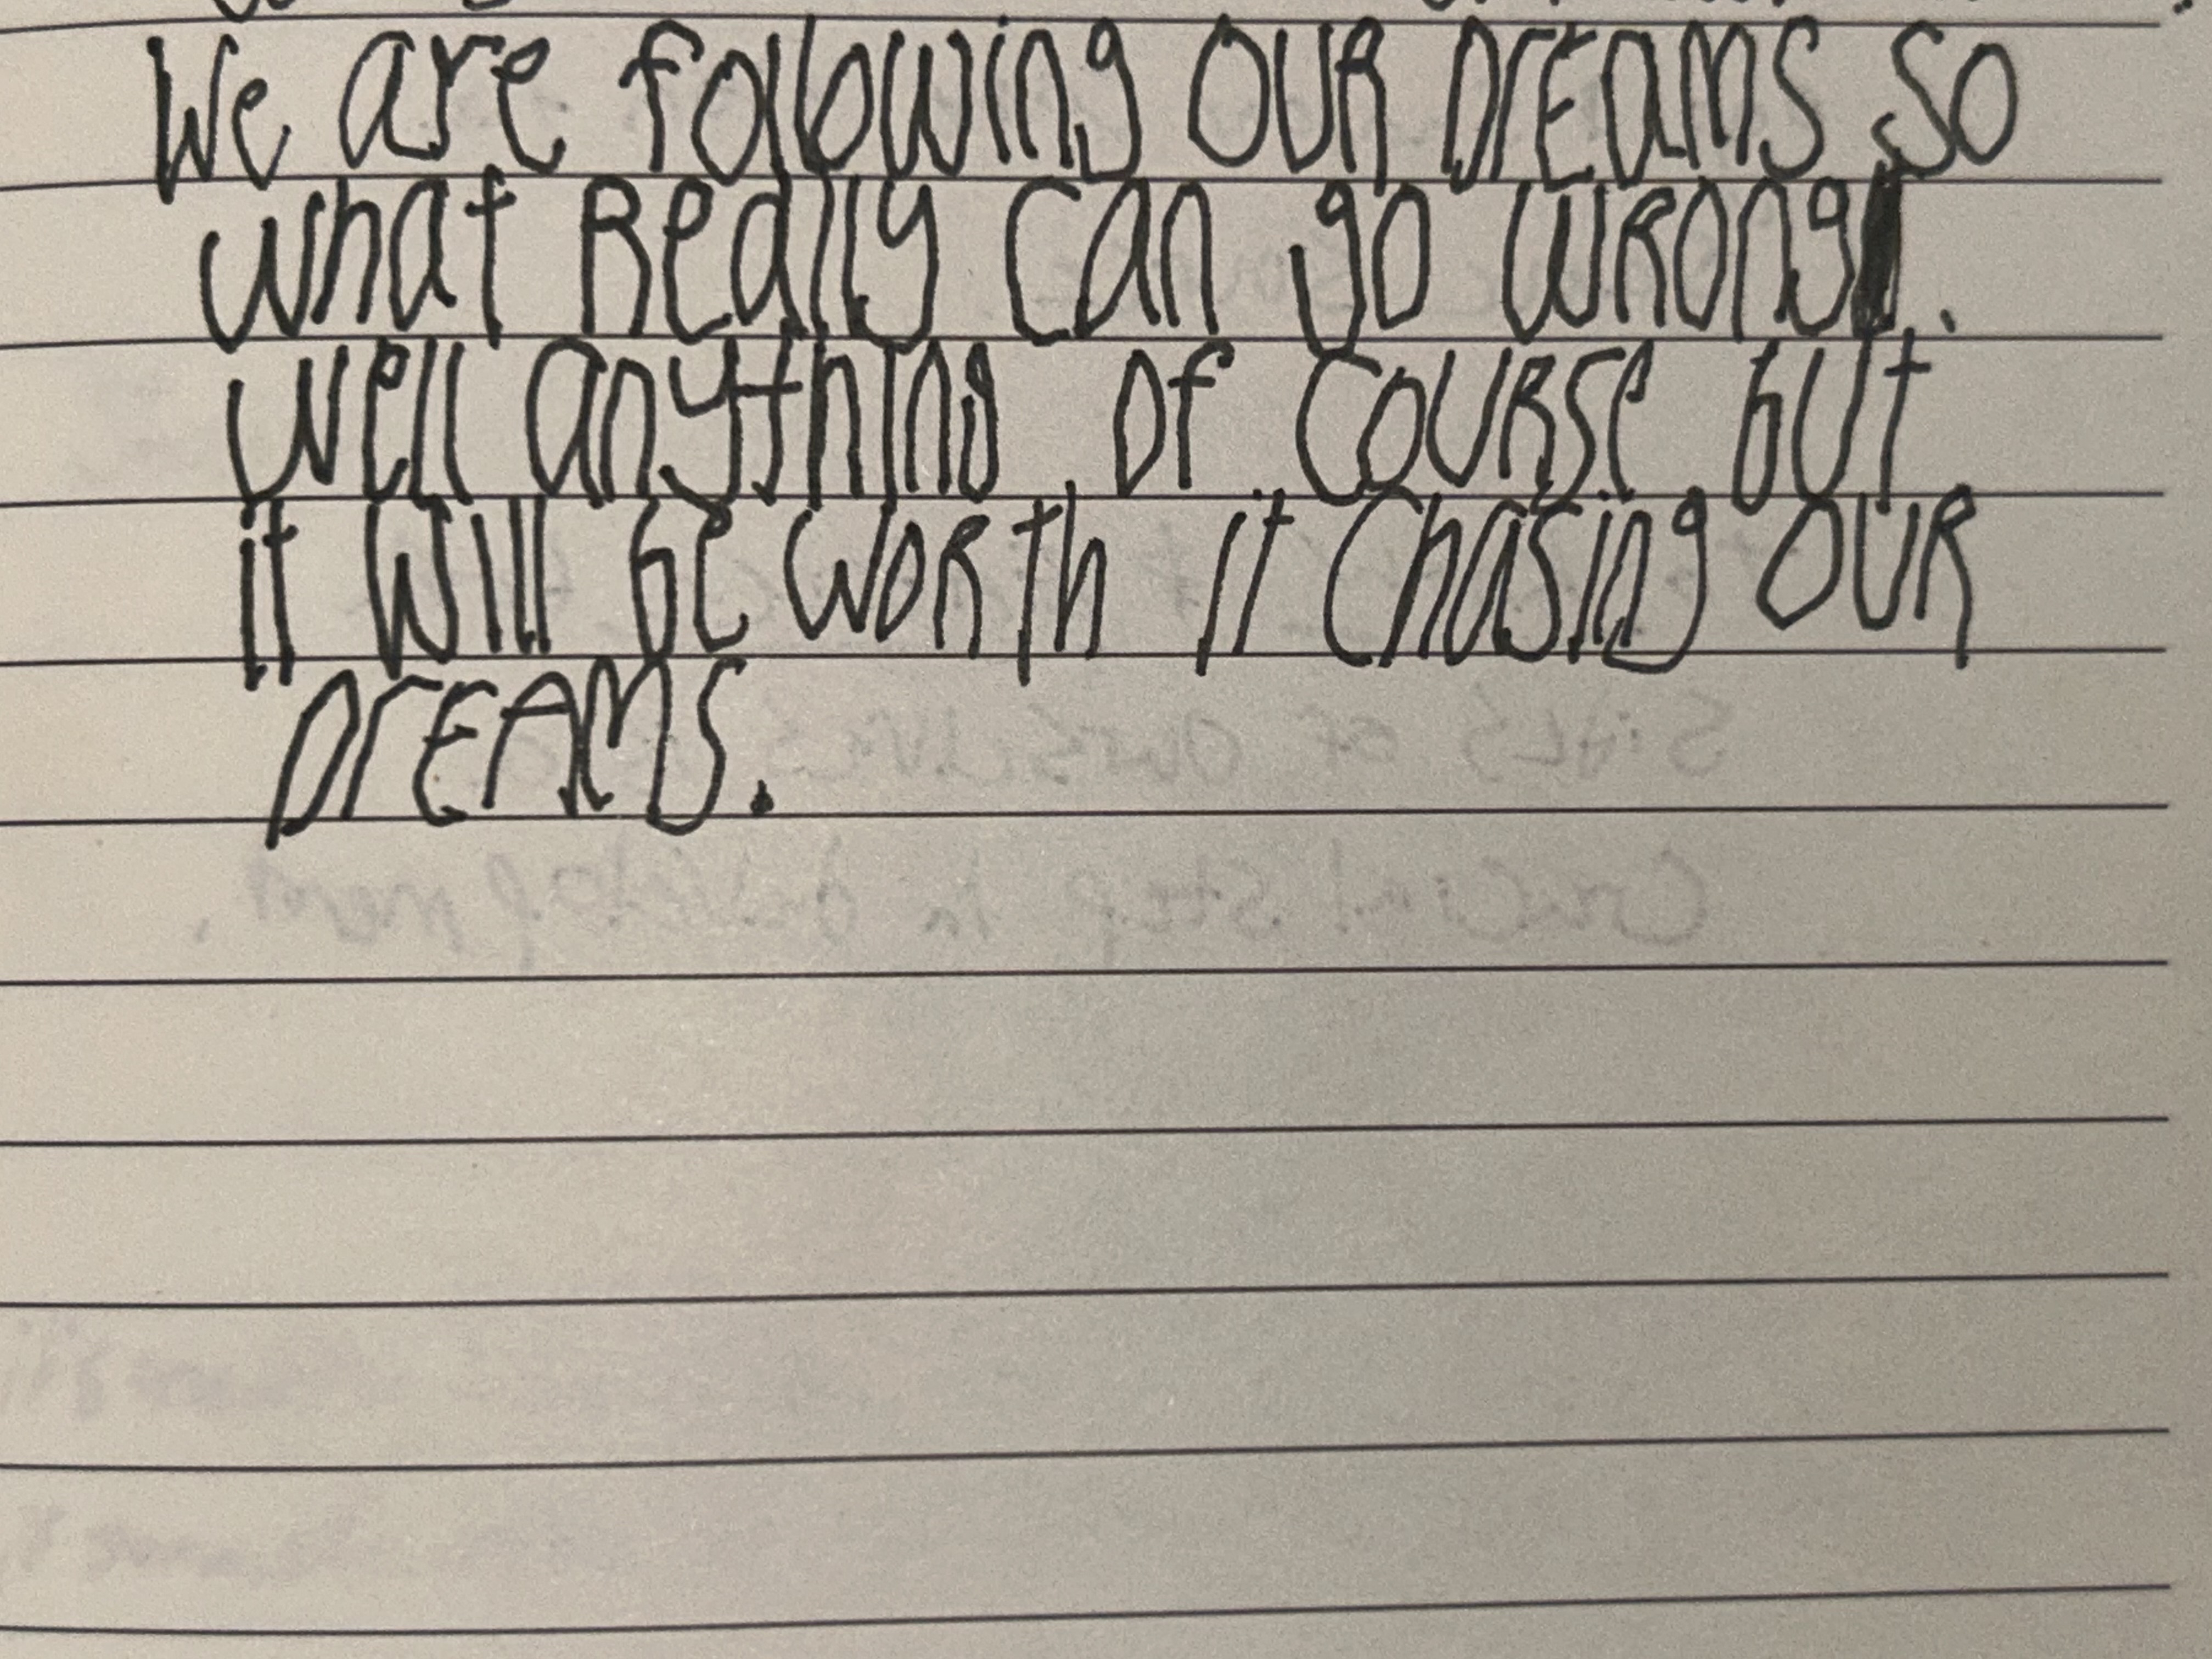 We are following OUR DrEamS so
what Really can go WRong.
well anything of CouRse but
it will be WoRth it Chasing OUR
DrEAmS.